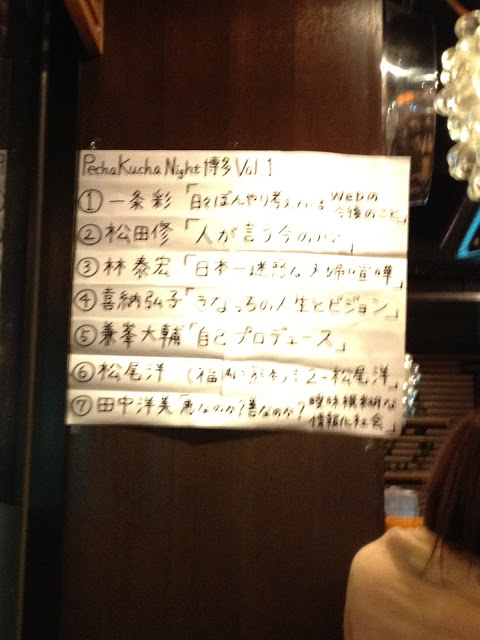 PechaKucha Night 博多 Vol.1
① 一条 彩 「日々ぼんやり考えている Webの今後のこと」
② 松田修 「人が言う今の」
③ 林 泰宏 「日本一迷惑な夫婦喧嘩」
④ 喜納弘子 「きなっちの人生とビジョン」
⑤ 兼峯大輔 「自己プロデュース」
⑥ 松尾洋 松尾洋」
⑦ 田中洋美 「悪なのか?善なのか? 曖昧模糊な情報化社会」